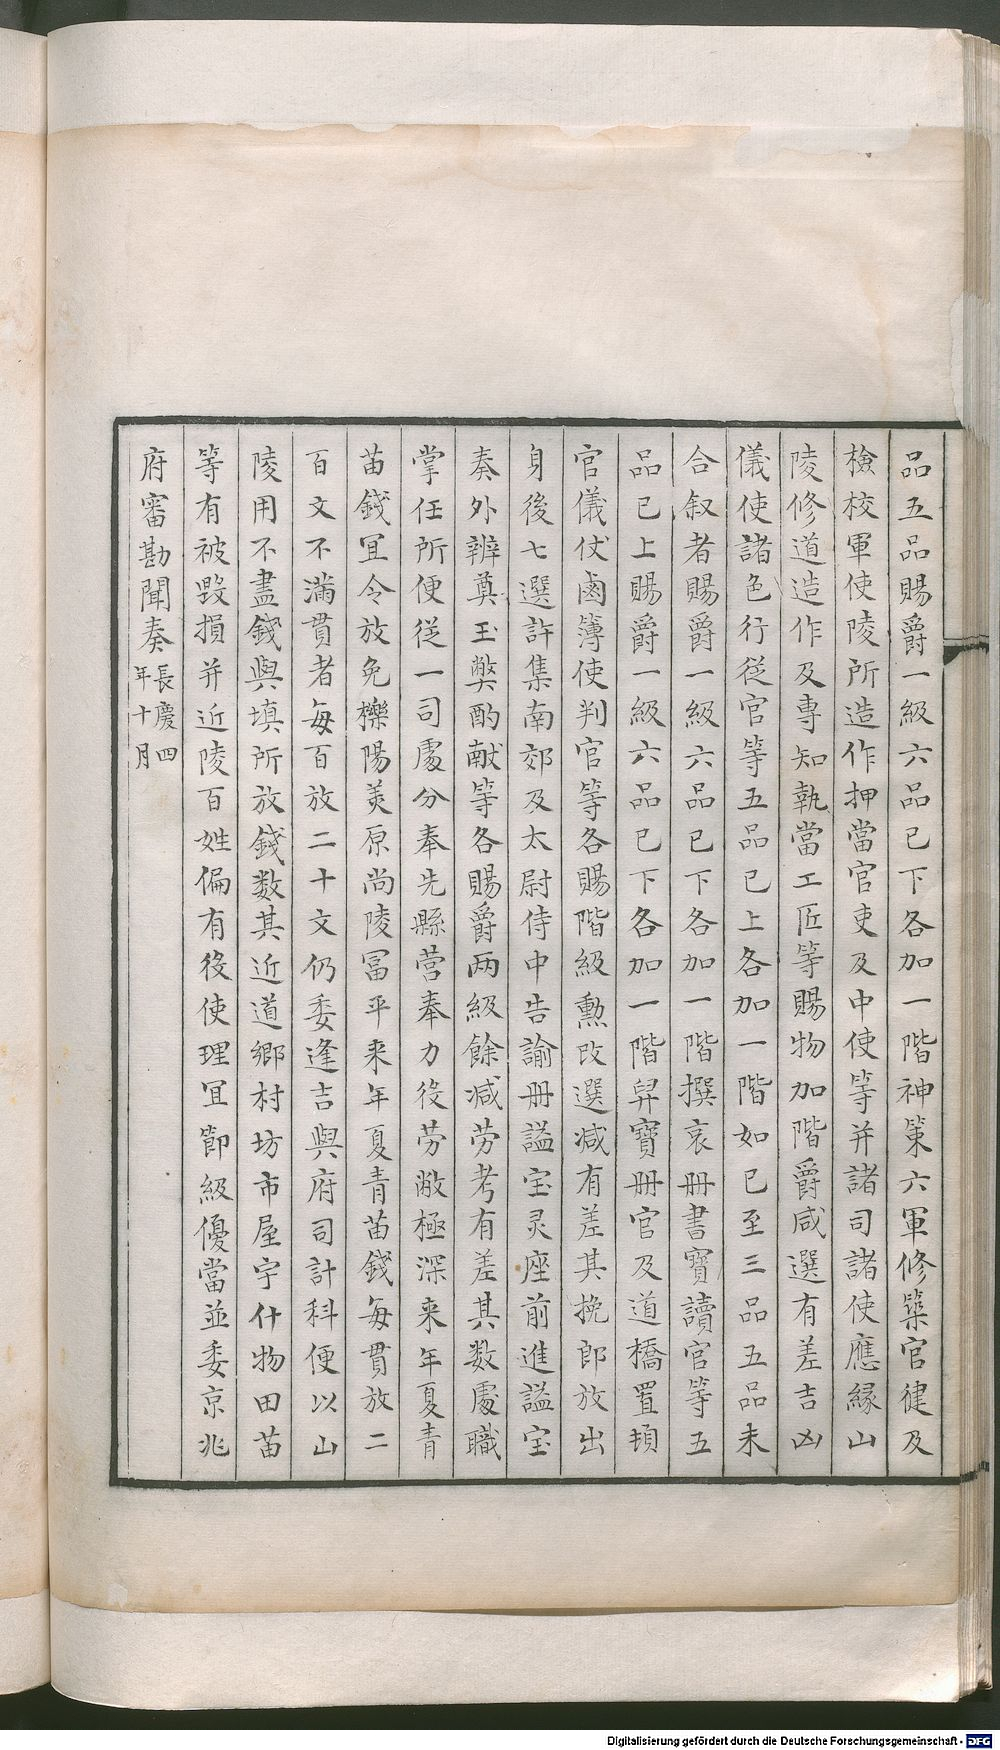 品五品賜爵一級六品已下各加一階神策六軍修築官健及
檢校軍使陵所造作押當官吏及中使等并諸司諸使應緣山
陵修道造作及專知執當工匠等賜物加階爵減選有差吉凶
儀使諸色行從官等五品已上各加一階如已至三品五品未
合叙者賜爵一級六品已下各加一階撰哀冊書寶讀官等五
品已上賜爵一級六品已下各加一階舁寶冊官及道橋置頓
官儀仗鹵簿使判官等各賜階級勲改選减有差其挽郎放出
身後七選許集南郊及太尉侍中告諭冊謚宝灵座前進謚宝
奏外辨奠玉弊酌献等各賜爵两級餘减劳考有差其数處職
掌任所便從一司處分奉先縣營奉力役劳敝極深来年夏青
苗錢冝令放免櫟陽羙原尚陵冨平来年夏青苗錢每貫放二
百文不滿貫者每百放二十文仍委逢吉與府司計科便以山
陵用不盡錢與填所放錢数其近道鄉村坊市屋宇什物田苗
等有被毁損并近陵百姓偏有役使理冝節級優當並委京兆
府審勘聞奏長慶四年十月
Digitalisierung gefördert durch die Deutsche Forschungsgemeinschaft - DFG